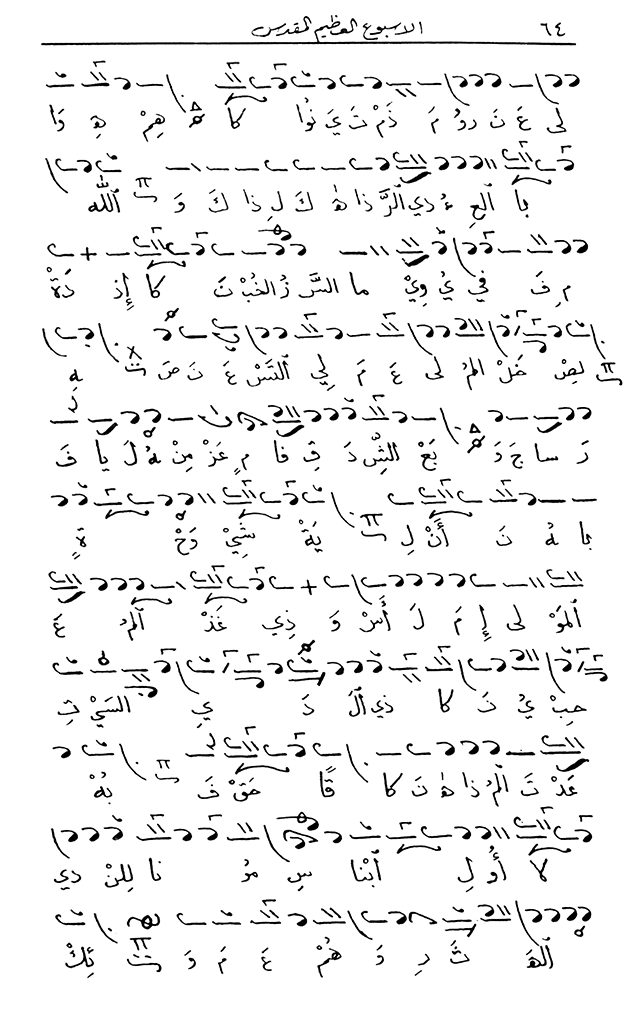 ٦٤ الاسبوع العظيم المقدس
لى عَ نَ رو مَ ذَمْ تَ يَ نُوا كا هِمْ هِ وَا
بآ ألعِ ءُ دي الرَّ ذا هٰ كَ لِ ذا كَ وَ اَللّٰه
مِ فَ في يُ وِيْ ما السَّرْ زُ الخُبْ نَ كا إِذ دَةْ
لِصْ خَلْ المُ لى عَ مَ لِي اَلتَسْ عَ نَ صَ هِ
رَ سا جَ دَ بَعْ الشِّرْ دَ قِ فا مِ عَزْ مِنْ هُ لَ يا فَ
با هُ نَ أَنْ لِ يَةْ شِيْ وَحْ ةٍ
اَلمَوْ لى إِ مَ لَ أَسْ وَ ذِي عَذْ اَلمُ عَ
حِبْ يُ نَ كا ذي اَلْ دَ يِ السَيْ تِ
عَدْ تَ اَلمُ ذا هٰ نَ كا قًا حَقْ فَ بُهْ
لا أُو لِ اَبْنا سِ مُو نا لِلنْ دي
اَلهَ ثَ رِ وَ هُمْ عَ مَ وَ ئِكْ